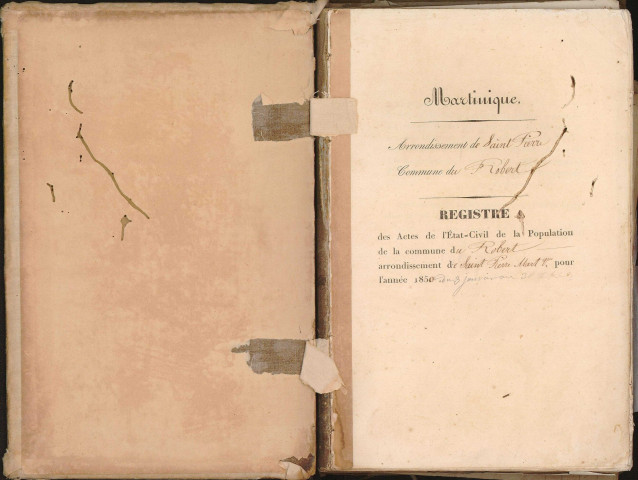 Martinique.
Arrondissement de Saint Pierre
Commune du Robert
REGISTRE
des Actes de l'État-Civil de la Population
de la commune du Robert
arrondissement de Saint Pierre Mart que, pour
l'année 1850 du 3 janvier au